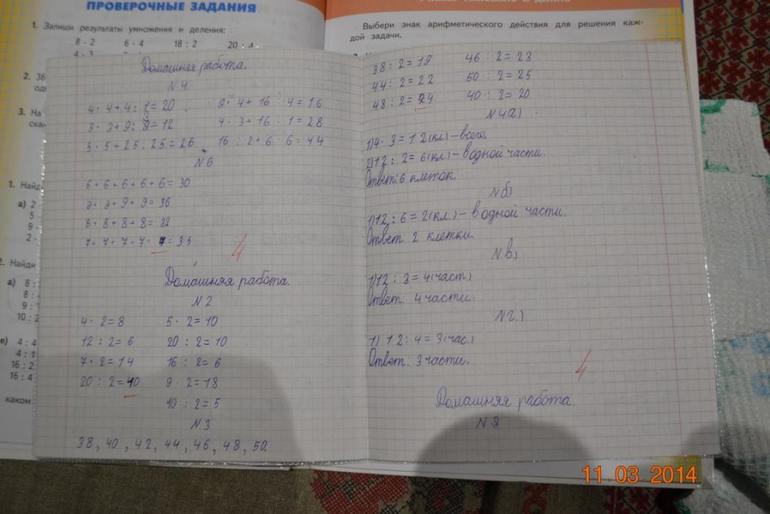 ПРОВЕРОЧНЫЕ ЗАДАНИЯ
1. Запиши результаты умножения и деления:
8 · 2 6 · 4 18 : 2 20 : 4
2. 36
3. На
1. Найд
а) 2
5
9
2 ·
2. Найди
а) 8 :
8 :
9 :
10 : 2
в) 4 : 4
4 : 1
16 : 2
16 : 4
каком
Домашняя работа.
N 4
4 · 4 + 4 : 1 = 20 9 · 4 + 16 : 4 = 16
3 · 3 + 9 : 3 = 12 4 · 3 + 16 · 1 = 28
5 · 5 + 25 : 25 = 26 16 : 2 + 6 · 6 = 44
N 6
6 + 6 + 6 + 6 + 6 = 30
9 + 9 + 9 + 9 = 36
8 + 8 + 8 + 8 = 32
7 + 7 + 7 + 7 + 7 = 35
4
Домашняя работа.
N 2
4 · 2 = 8 5 · 2 = 10
12 : 2 = 6 20 : 2 = 10
7 · 2 = 14 16 : 2 = 6
20 : 2 = 10 9 · 2 = 18
10 : 2 = 5
N 3
38, 40, 42, 44, 46, 48, 50.
Выбери знак арифметического действия для решения каж-
дой задачи.
38 : 2 = 19 46 : 2 = 23
44 : 2 = 22 50 : 2 = 25
48 : 2 = 24 40 : 2 = 20
N 4(а)
1) 4 · 3 = 12(кл) – всего.
2) 12 : 2 = 6(кл) – в одной части.
Ответ: 6 клеток.
N б)
1) 12 : 6 = 2(кл.) – в одной части.
Ответ: 2 клетки.
N в)
1) 12 : 3 = 4(част.)
Ответ: 4 части.
N г.)
1) 12 : 4 = 3(час.)
Ответ: 3 части.
4
Домашняя работа.
N 2
11 03 2014